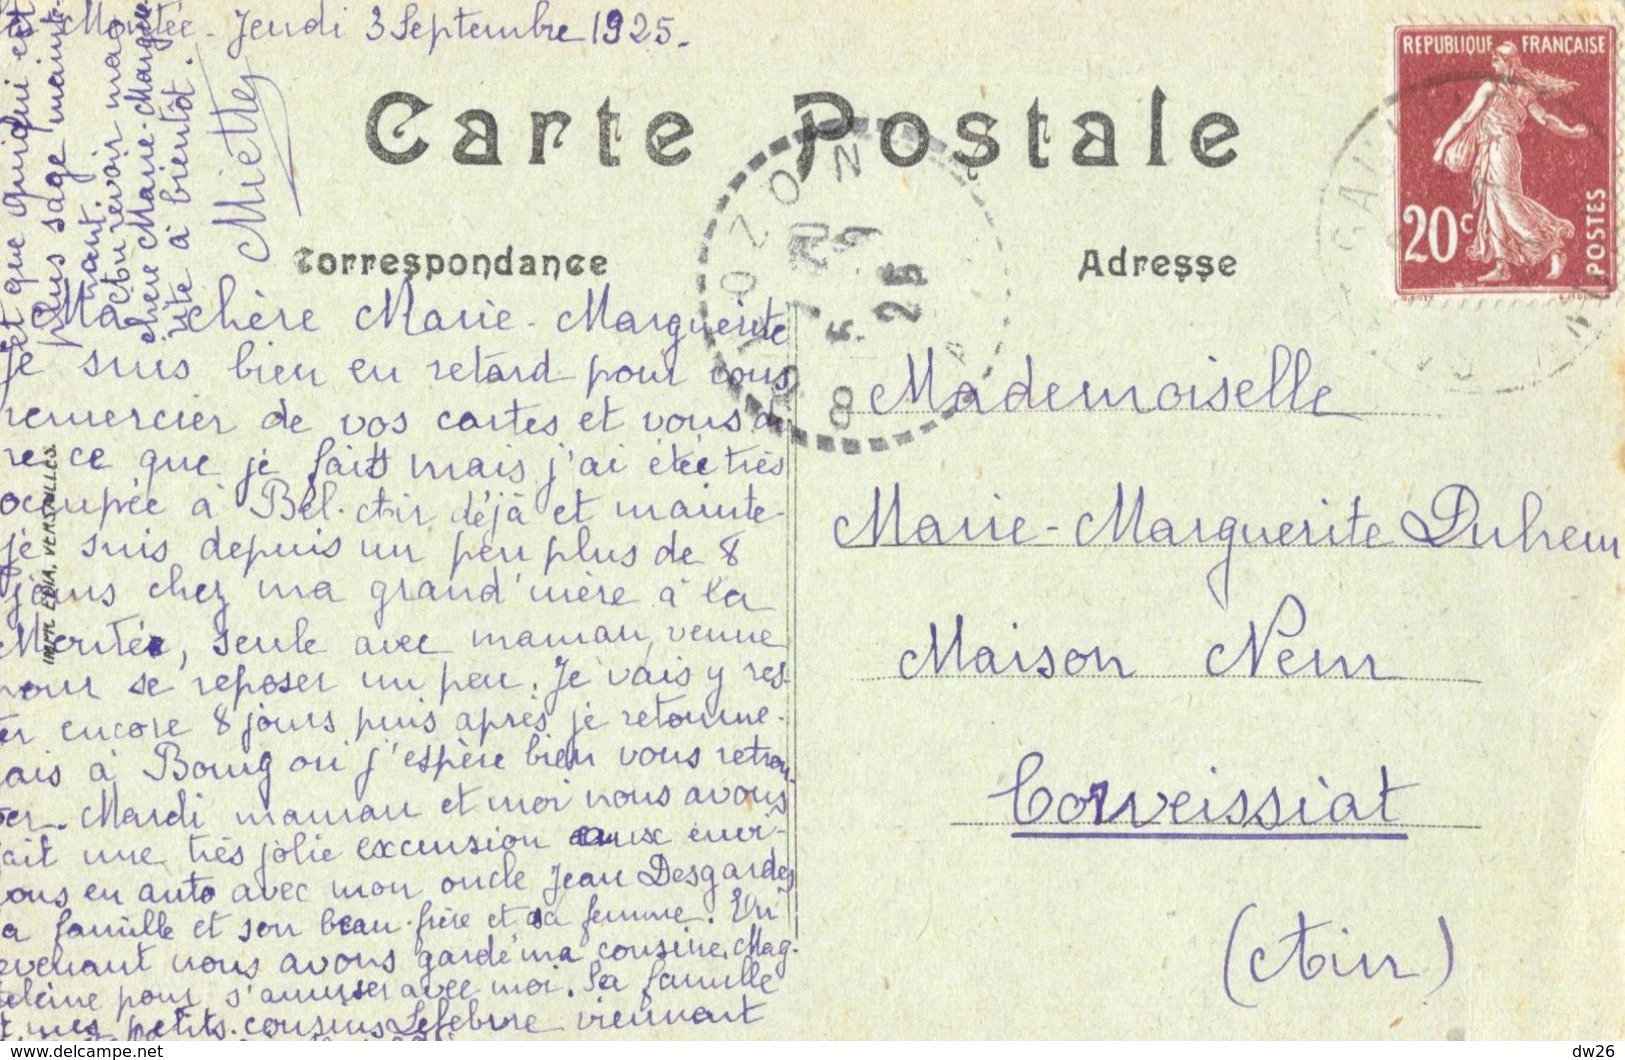 Montée - Jeudi 3 Septembre 1925.
Carte Postale
Correspondance
Adresse
REPUBLIQUE FRANÇAISE
20c
POSTES
OZON
25
Ma chère Marie-Marguerite
je suis bien en retard pour vous
remercier de vos cartes et vous di
re ce que je fais mais j'ai été très
occupée à Bel-Air déjà et mainte-
je suis depuis un peu plus de 8
jours chez ma grand'mère à la
Montée, seule avec maman, venue
pour se reposer un peu. Je vais y res-
ter encore 8 jours puis après je retourne-
rais à Bourg où j'espère bien vous retrou-
ver. Mardi maman et moi nous avons
fait une très jolie excursion aux envi-
rons en auto avec mon oncle Jean Desgardes
sa famille et son beau-frère et sa femme. En
revenant nous avons gardé ma cousine Mag-
deleine pour s'amuser avec moi. Sa famille
et mes petits cousins Lefebvre viennent
et que qui est
plus sage mainte-
nant.
Au revoir ma
chère Marie-Margue-
rite à bientôt.
Miette
IMPR. EDIA, VERSAILLES.
Mademoiselle
Marie-Marguerite Duhem
Maison Nem
Corveissiat
(Ain)
dw26
www.delcampe.net